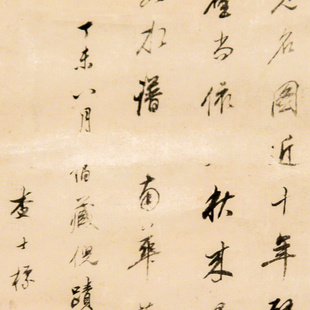 名園近十年
尚依秋來
譜南華
丁未八月伯藏倪蹟
查士標